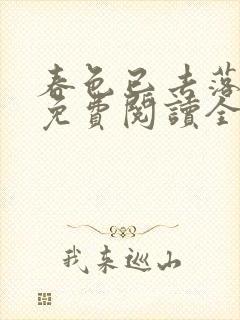 春色已去落
免費閱讀全
我来巡山